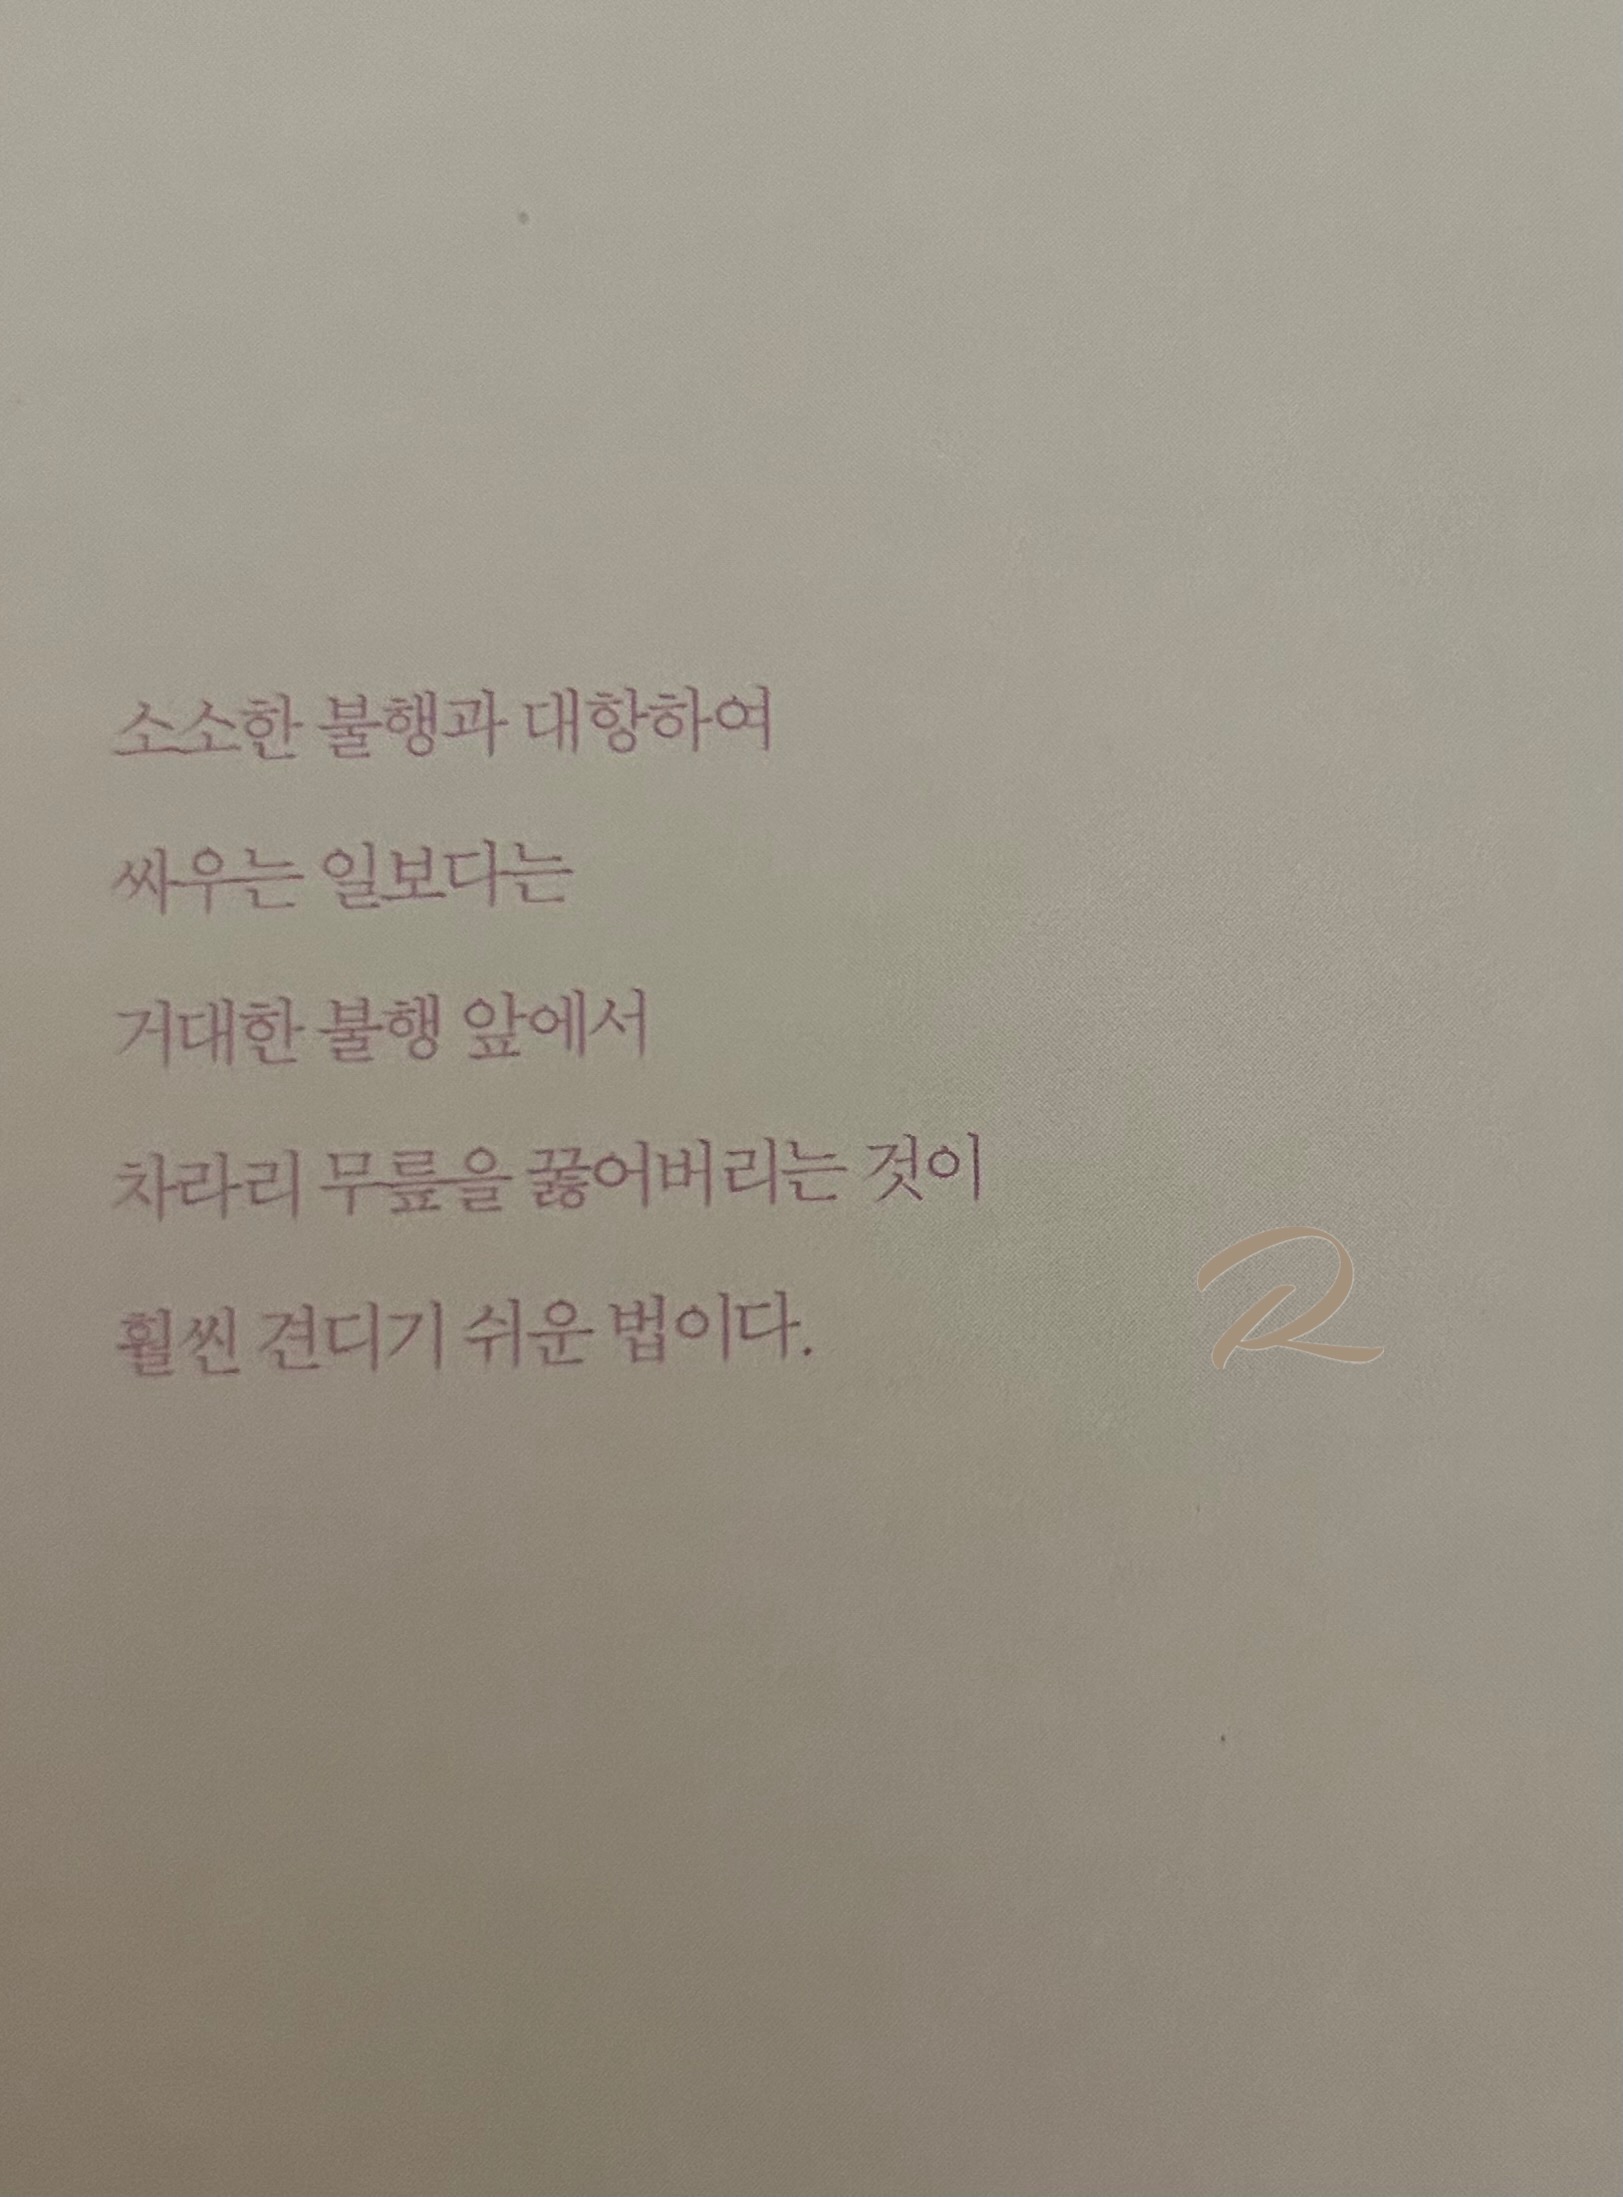 소소한 불행과 대항하여
싸우는 일보다는
거대한 불행 앞에서
차라리 무릎을 꿇어버리는 것이
훨씬 견디기 쉬운 법이다.
R